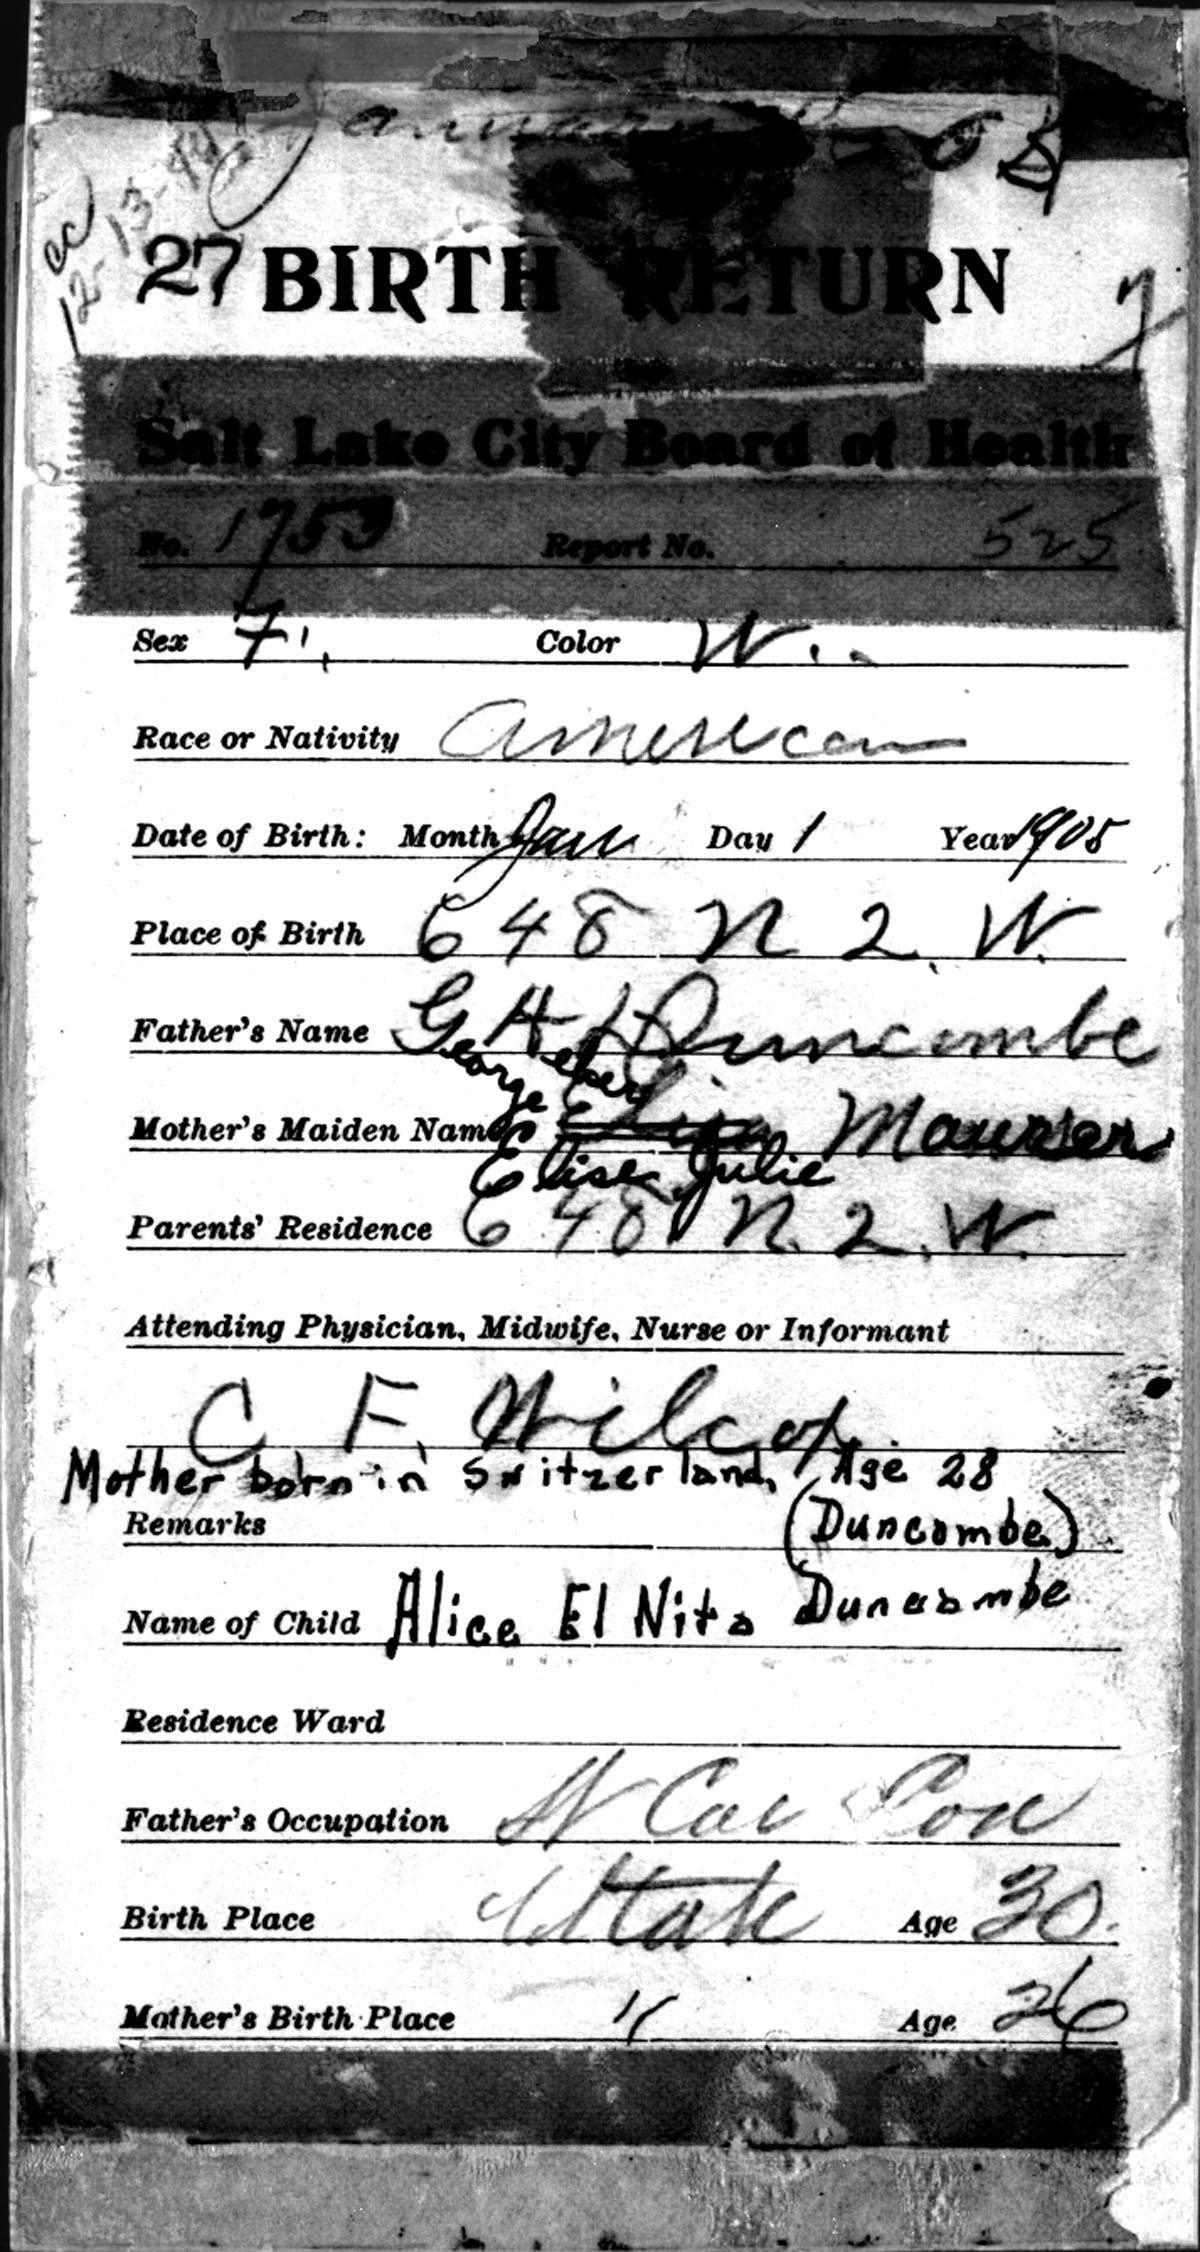 January 05
cc
12-13-49
27 BIRTH RETURN
Salt Lake City Board of Health
No. 1753 Report No. 525
Sex F. Color W.
Race or Nativity American
Date of Birth: Month Jan Day 1 Year 1905
Place of Birth 648 N 2. W.
Father's Name G H Duncombe
George Heber
Mother's Maiden Name Eliza Maurer
Elise Julie
Parents' Residence 648 N. 2. W.
Attending Physician, Midwife, Nurse or Informant
C F. Wilcox.
Mother born in Switzerland, Age 28
Remarks (Duncombe)
Name of Child Alice El Nita Duncombe
Residence Ward
Father's Occupation Car
Birth Place Utah Age 30.
Mother's Birth Place " Age 26